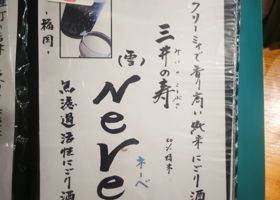 クリーミィで香り高い純米にごり酒
みいのことぶき
三井の寿
60%精米
(雪)
Neve
ネーベ
無濾過活性にごり酒
-福岡-